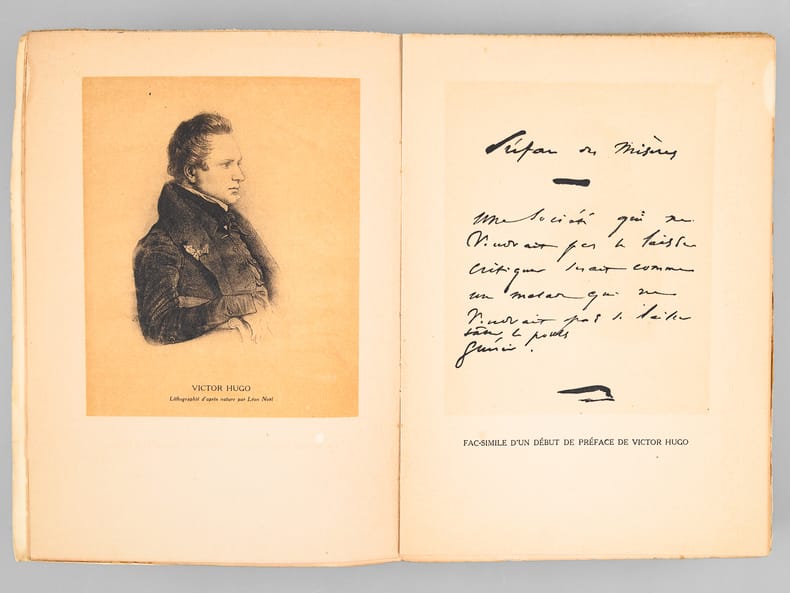 VICTOR HUGO
Lithographié d'après nature par Léon Noël
Préface des Misères
Une Société qui ne
Voudrait pas se laisser
critiquer serait comme
un malade qui ne
Voudrait pas se laisser
tâter le pouls
Guérir.
FAC-SIMILE D'UN DÉBUT DE PRÉFACE DE VICTOR HUGO